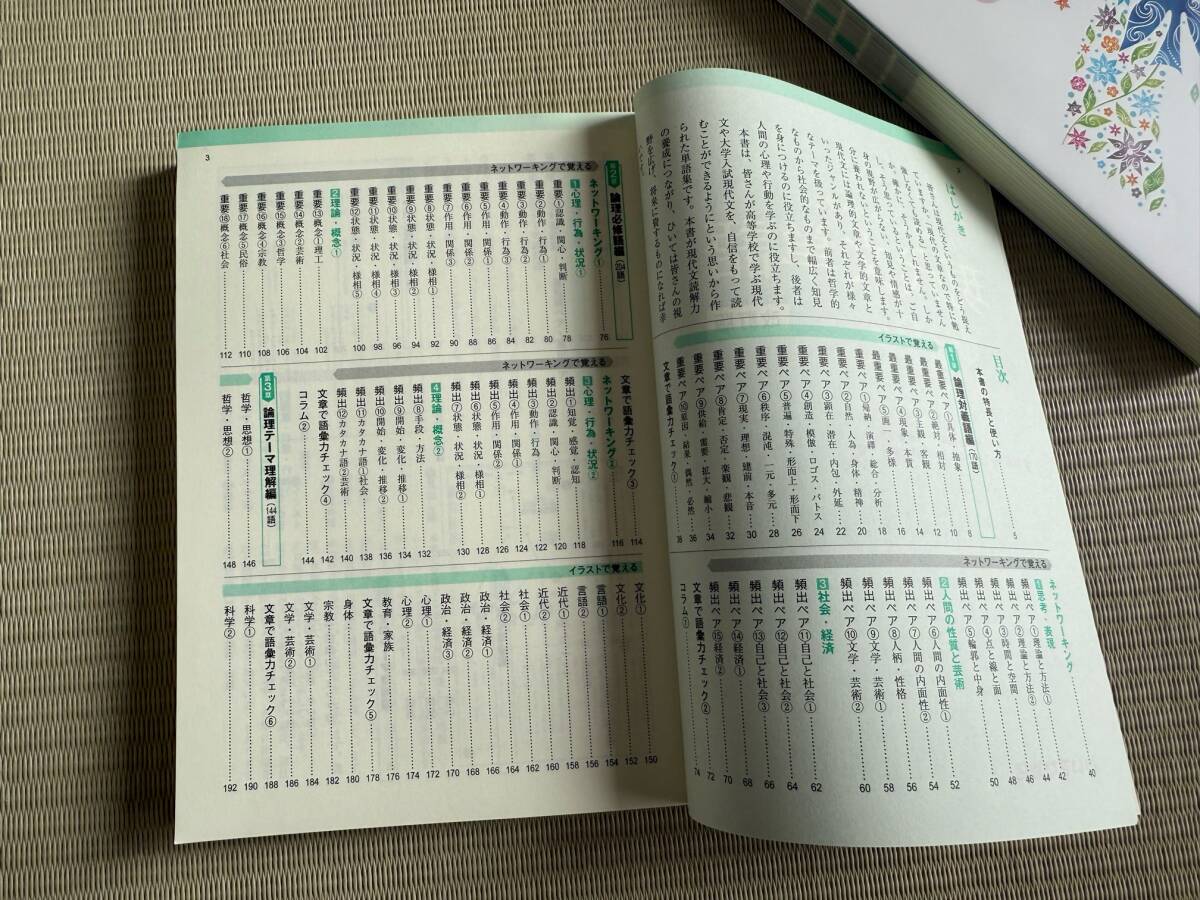 2
はしがき
皆さんは現代文というものをどう捉え
ていますか。「現代の文章なので特に勉
強しなくても読める」と思っていません
か。
もしそう思っているということは、ご自
身の視野が広がらない、知見や情感が十
分に養われないということを意味します。
現代文には論理的文章や文学的文章と
いったジャンルがあり、それぞれが様々
なテーマを扱っています。前者は哲学的
なものから社会的なものまで幅広く知見
を身につけるのに役立ちますし、後者は
人間の心理や行動を学ぶのに役立ちます。
本書は、皆さんが高等学校で学ぶ現代
文や大学入試現代文を、自信をもって読
むことができるようにという思いから作
られた単語集です。本書が現代文読解力
の要成につながり、ひいては皆さんの視
野を広げ、将来に資するものになれば幸
いです。
目次
本書の特長と使い方 5
第1章 論理対義語編(70語) 8
イラストで覚える
最重要ペア①具体・抽象 10
最重要ペア②絶対・相対 12
最重要ペア③主観・客観 14
最重要ペア④現象・本質 16
最重要ペア⑤画一・多様 18
重要ペア①帰納・演繹 総合・分析 20
重要ペア②自然・人為・身体・精神 22
重要ペア③顕在・潜在・内包・外延 24
重要ペア④創造・模倣・ロゴス・パトス 26
重要ペア⑤普遍・特殊・形而上・形而下 28
重要ペア⑥秩序・混沌・一元・多元 30
重要ペア⑦現実・理想・建前・本音 32
重要ペア⑧肯定・否定・楽観・悲観 34
重要ペア⑨供給・需要・拡大・縮小 36
重要ペア⑩原因・結果・偶然・必然
文章で語彙力チェック① 38
ネットワーキングで覚える
ネットワーキング 40
1 思考・表現
頻出ペア①理論と方法① 42
頻出ペア②理論と方法② 44
頻出ペア③時間と空間 46
頻出ペア④点と線と面 48
頻出ペア⑤輪郭と中身 50
2 人間の性質と芸術
頻出ペア⑥人間の内面性① 52
頻出ペア⑦人間の内面性② 54
頻出ペア⑧人柄・性格 56
頻出ペア⑨文学・芸術① 58
頻出ペア⑩文学・芸術② 60
3 社会・経済
頻出ペア⑪自己と社会① 62
頻出ペア⑫自己と社会② 64
頻出ペア⑬自己と社会③ 66
頻出ペア⑭経済① 68
頻出ペア⑮経済② 70
文章で語彙力チェック② 72
コラム① 74
3
第2章 論理必修語編(204語)
ネットワーキングで覚える
ネットワーキング① 76
1 心理・行為・状況①
重要①認識・関心・判断 78
重要②動作・行為① 80
重要③動作・行為② 82
重要④動作・行為③ 84
重要⑤作用・関係① 86
重要⑥作用・関係② 88
重要⑦作用・関係③ 90
重要⑧状態・状況・様相① 92
重要⑨状態・状況・様相② 94
重要⑩状態・状況・様相③ 96
重要⑪状態・状況・様相④ 98
重要⑫状態・状況・様相⑤ 100
2 理論・概念①
重要⑬概念①理工 102
重要⑭概念②芸術 104
重要⑮概念③哲学 106
重要⑯概念④宗教 108
重要⑰概念⑤民俗 110
重要⑱概念⑥社会 112
ネットワーキングで覚える
文章で語彙力チェック③ 114
ネットワーキング② 116
3 心理・行為・状況②
頻出①知覚・感覚・認知 118
頻出②認識・関心・判断 120
頻出③動作・行為 122
頻出④作用・関係① 124
頻出⑤作用・関係② 126
頻出⑥状態・状況・様相① 128
頻出⑦状態・状況・様相② 130
4 理論・概念②
頻出⑧手段・方法 132
頻出⑨開始・変化・推移① 134
頻出⑩開始・変化・推移② 136
頻出⑪カタカナ語①社会 138
頻出⑫カタカナ語②芸術 140
文章で語彙力チェック④ 142
コラム② 144
第3章 論理テーマ理解編(144語)
哲学・思想① 146
哲学・思想② 148
イラストで覚える
文化① 150
文化② 152
言語① 154
言語② 156
近代① 158
近代② 160
社会① 162
社会② 164
政治・経済① 166
政治・経済② 168
政治・経済③ 170
心理① 172
心理② 174
教育・家族 176
文章で語彙力チェック⑤ 178
身体 180
宗教 182
文学・芸術① 184
文学・芸術② 186
文章で語彙力チェック⑥ 188
科学① 190
科学② 192